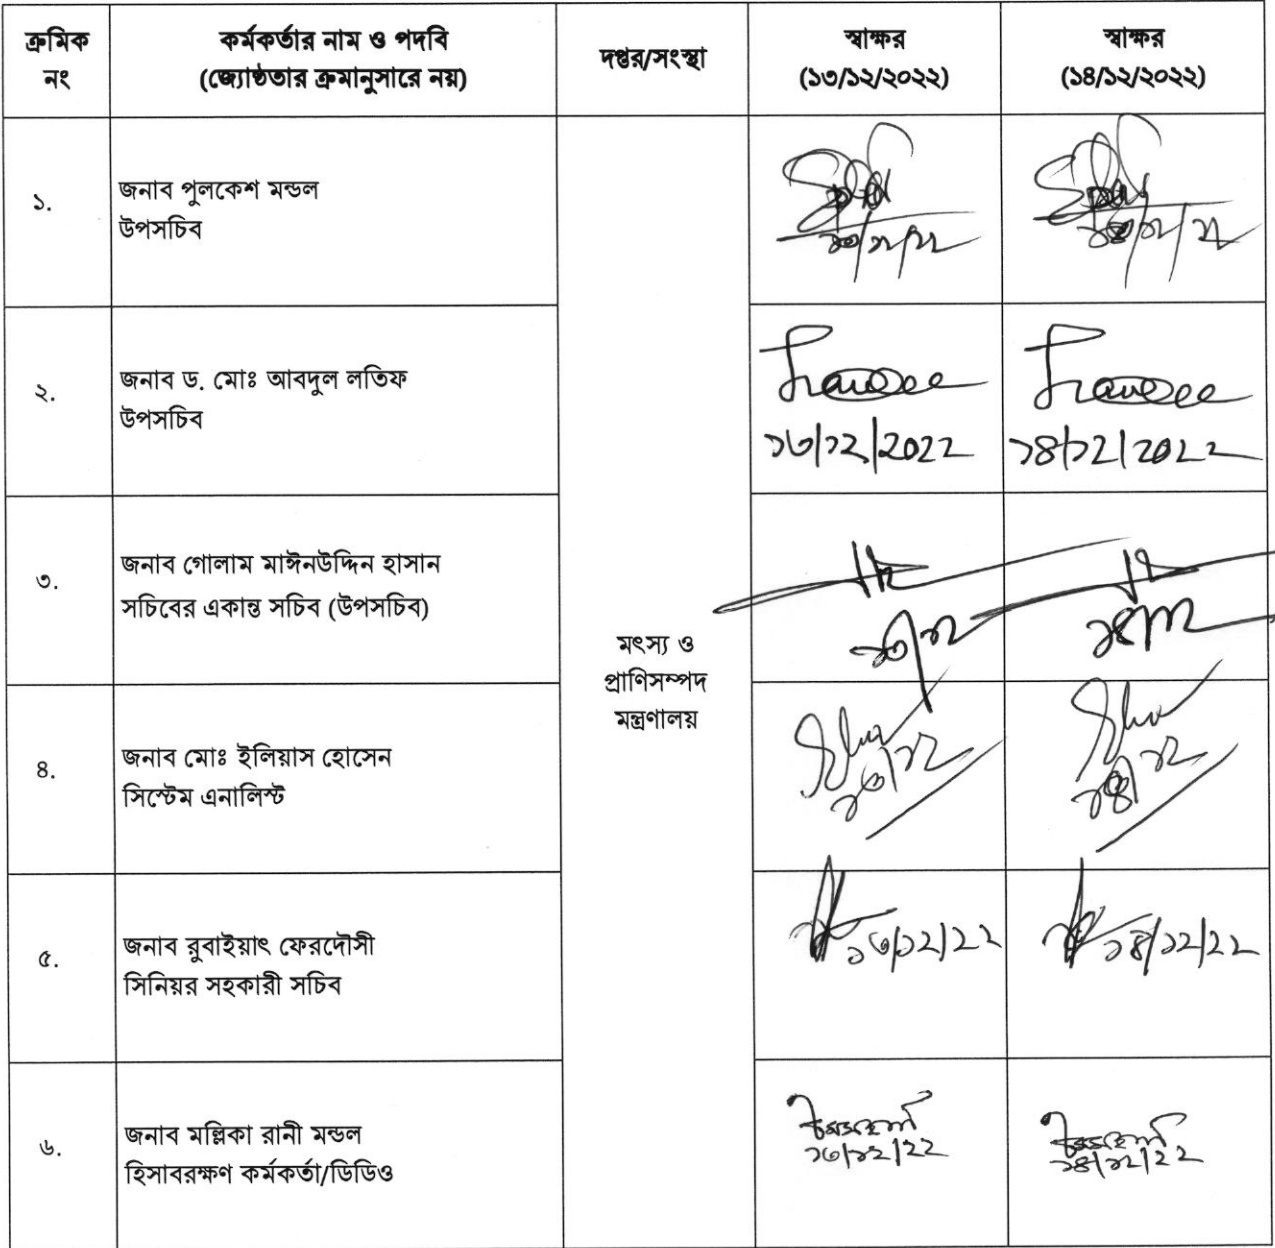 ক্রমিক
নং
কর্মকর্তার নাম ও পদবি
(জ্যেষ্ঠতার ক্রমানুসারে নয়)
দপ্তর/সংস্থা
স্বাক্ষর
(১৩/১২/২০২২)
স্বাক্ষর
(১৪/১২/২০২২)
১.
জনাব পুলকেশ মন্ডল
উপসচিব
১৩/১২/২২
১৪/১২/২২
২.
জনাব ড. মোঃ আবদুল লতিফ
উপসচিব
১৩/১২/2022
১৪/১২/2022
৩.
জনাব গোলাম মাঈনউদ্দিন হাসান
সচিবের একান্ত সচিব (উপসচিব)
১৩/১২
১৪/১২
মৎস্য ও
প্রাণিসম্পদ
মন্ত্রণালয়
৪.
জনাব মোঃ ইলিয়াস হোসেন
সিস্টেম এনালিস্ট
১৩/১২
১৪/১২
৫.
জনাব রুবাইয়াৎ ফেরদৌসী
সিনিয়র সহকারী সচিব
১৩/১২/২২
১৪/১২/২২
৬.
জনাব মল্লিকা রানী মন্ডল
হিসাবরক্ষণ কর্মকর্তা/ডিডিও
১৩/১২/২২
১৪/১২/২২